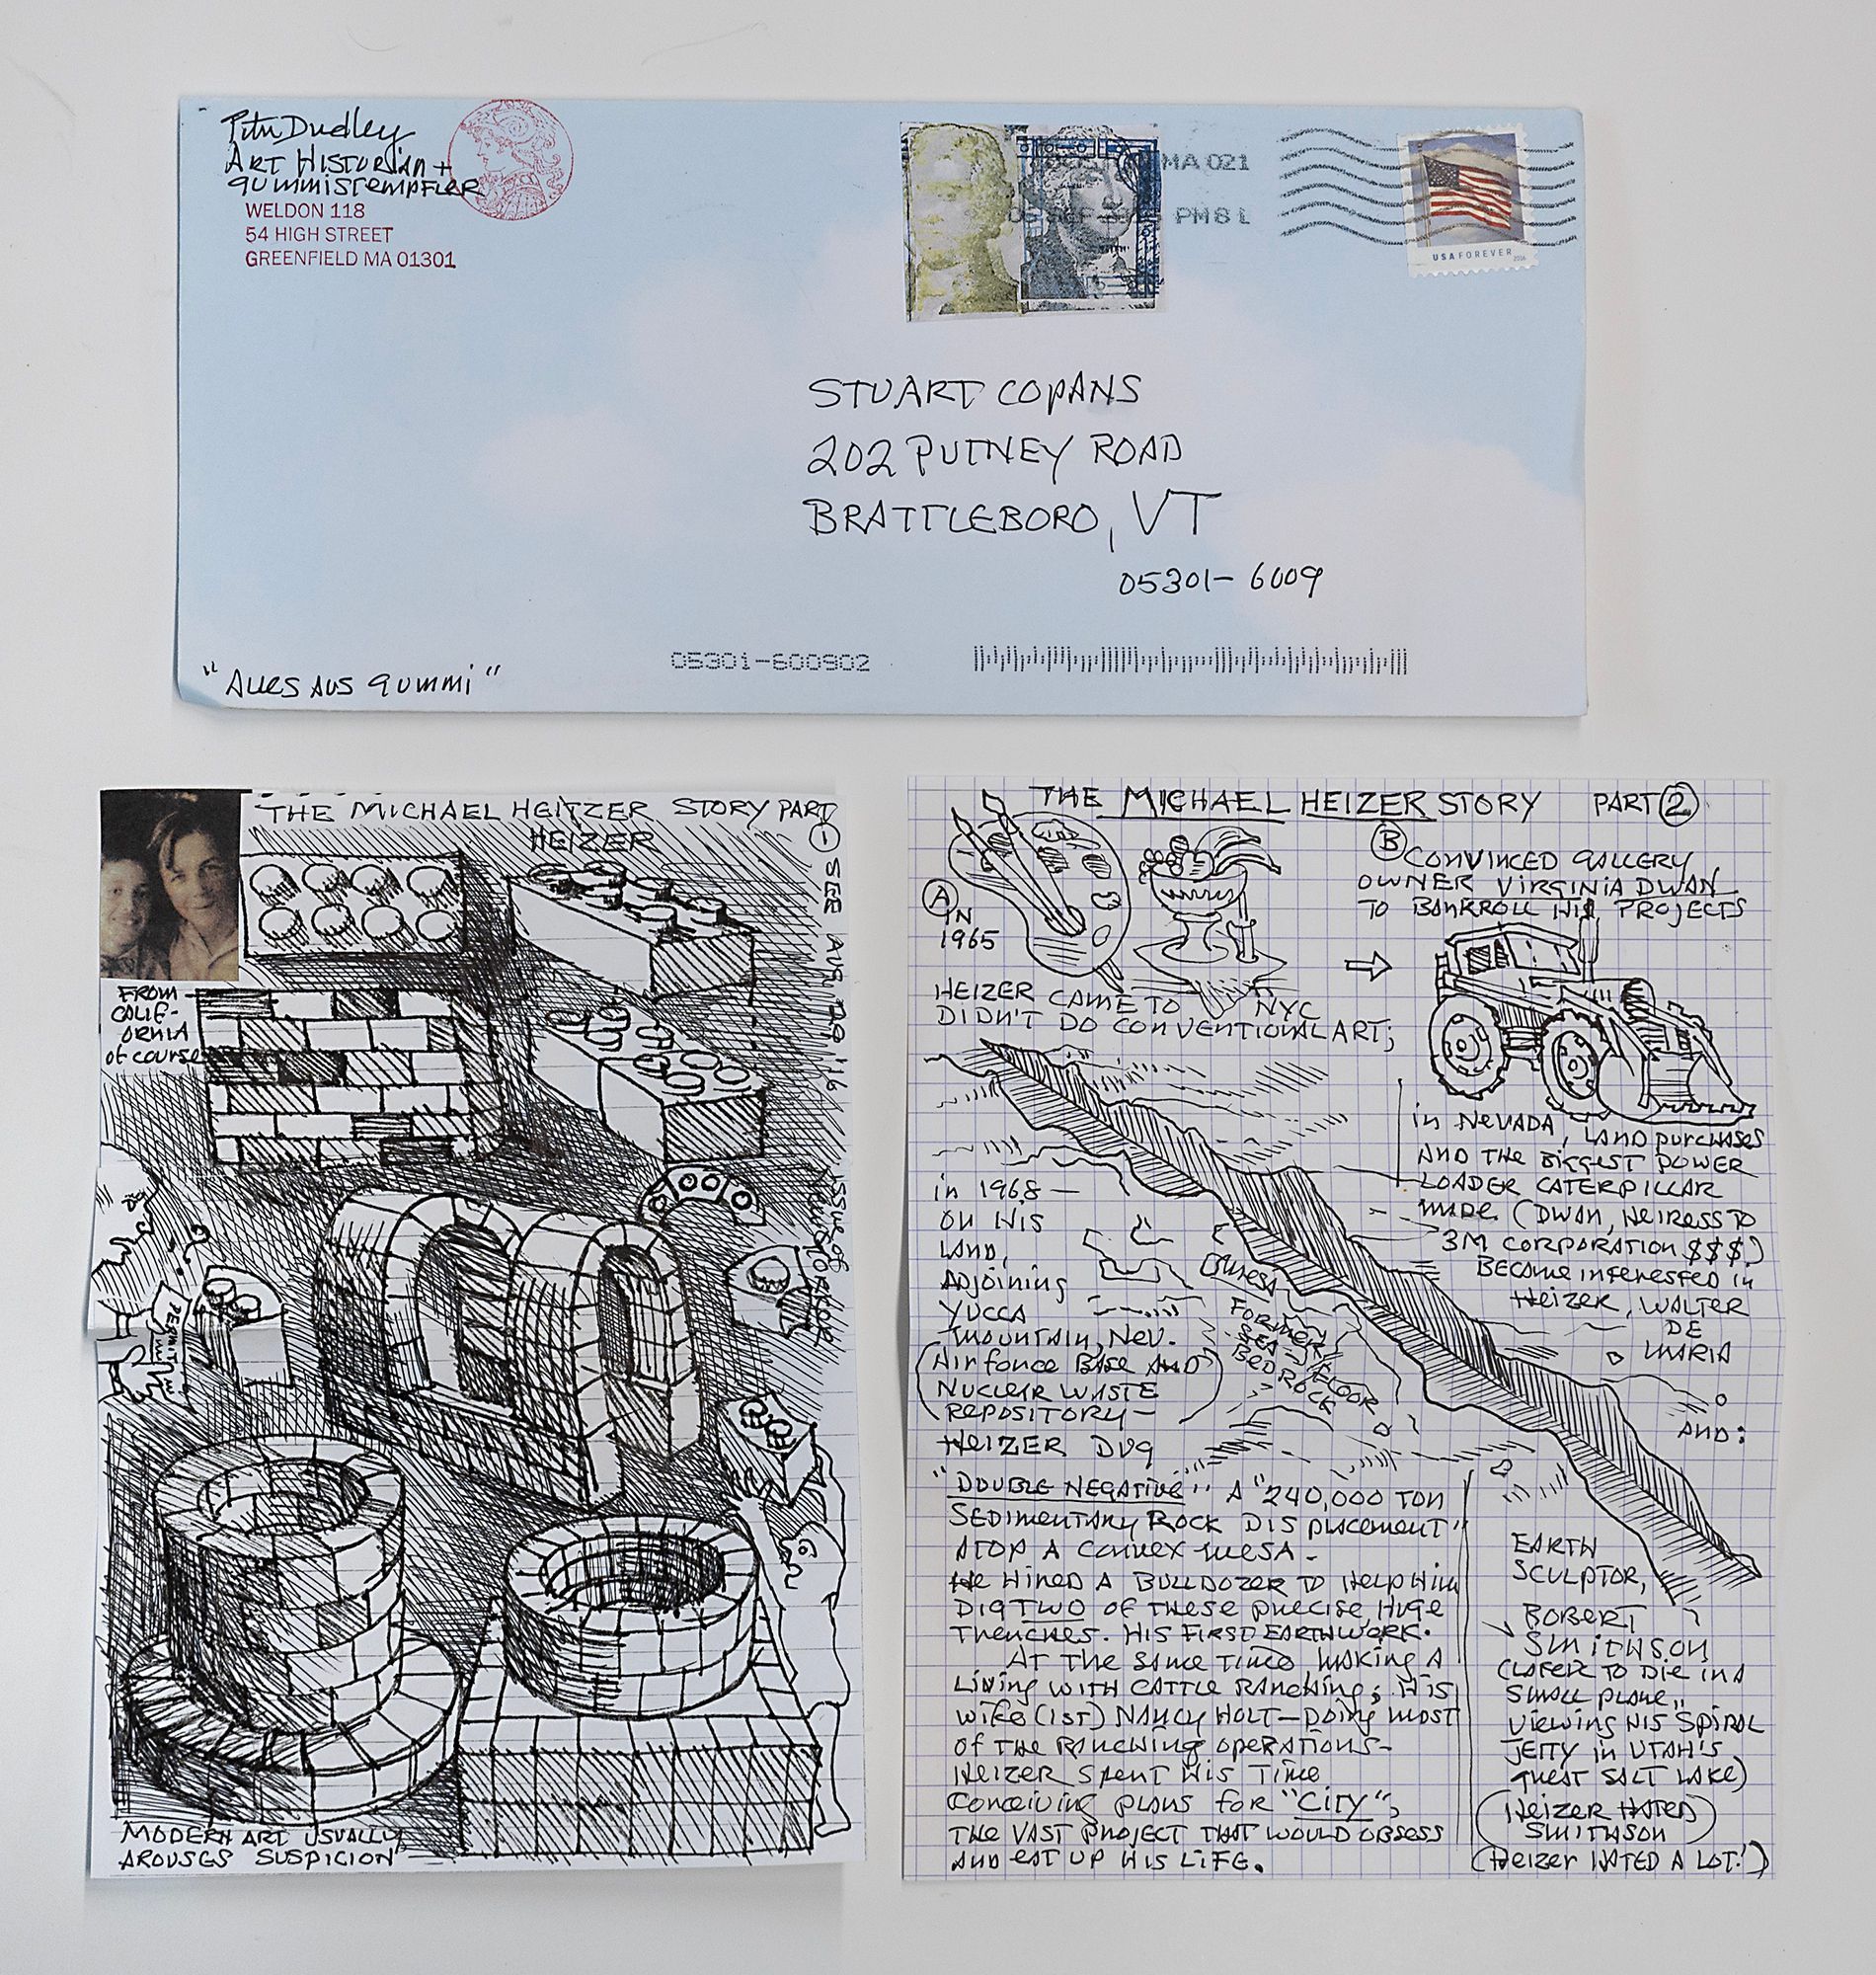 Peter Dudley
ART HISTORIAN +
gummistempfler
WELDON 118
54 HIGH STREET
GREENFIELD MA 01301
MA 021
PM 8 L
USA FOREVER
2016
STUART COPANS
202 PUTNEY ROAD
BRATTLEBORO, VT
05301-6009
05301-600902
"ALLES AUS gummi"
THE MICHAEL HEITZER STORY PART 1
HEIZER
SEE AUG 29 '16
ISSUE OF
NEW YORKER
FROM
CALIF-
ORNIA
of course
PERMIT
MODERN ART USUALLY
AROUSES SUSPICION
THE MICHAEL HEIZER STORY PART 2
A
IN
1965
HEIZER CAME TO NYC
DIDN'T DO CONVENTIONAL ART;
B
CONVINCED GALLERY
OWNER VIRGINIA DWAN
TO BANKROLL HIS PROJECTS
in NEVADA, LAND purchases
AND THE BIGGEST POWER
LOADER CATERPILLAR
MADE. (DWAN, HEIRESS TO
3M CORPORATION $$$)
BECAME interested in
HEIZER, WALTER
DE
MARIA
AND:
EARTH
SCULPTOR,
ROBERT
SMITHSON
(LATER TO DIE IN A
SMALL PLANE,
VIEWING HIS SPIRAL
JETTY in UTAH'S
GREAT SALT LAKE)
(HEIZER HATED
SMITHSON)
(HEIZER HATED A LOT!)
in 1968 —
ON HIS
LAND,
ADJOINING
YUCCA
MOUNTAIN, NEV.
(AIR FORCE BASE AND
NUCLEAR WASTE
REPOSITORY —)
HEIZER DUG
FORMER
SEA FLOOR
BEDROCK
"DOUBLE NEGATIVE" A "240,000 TON
SEDIMENTARY ROCK DISPLACEMENT"
ATOP A CONVEX MESA.
HE HIRED A BULLDOZER TO HELP HIM
DIG TWO OF THESE PRECISE, HUGE
TRENCHES. HIS FIRST EARTHWORK.
AT THE SAME TIME MAKING A
LIVING WITH CATTLE RANCHING; HIS
WIFE (1ST) NANCY HOLT — DOING MOST
OF THE RANCHING OPERATIONS —
HEIZER SPENT HIS TIME
CONCEIVING PLANS FOR "CITY",
THE VAST PROJECT THAT WOULD OBSESS
AND EAT UP HIS LIFE.